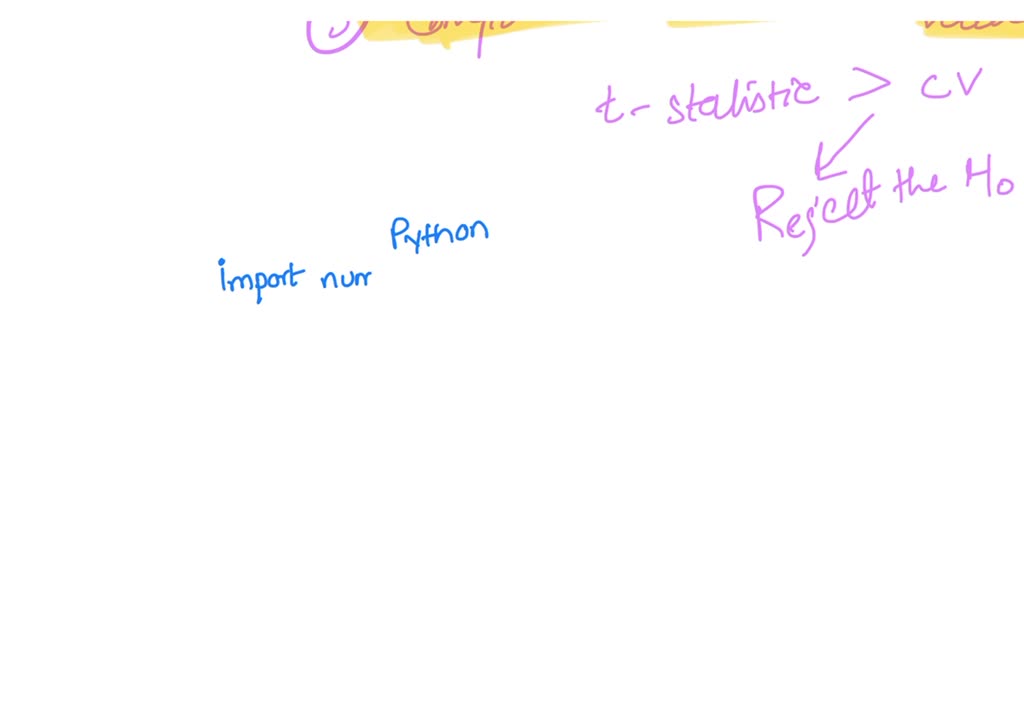 t- statistic > CV
Reject the H0
Python
import num